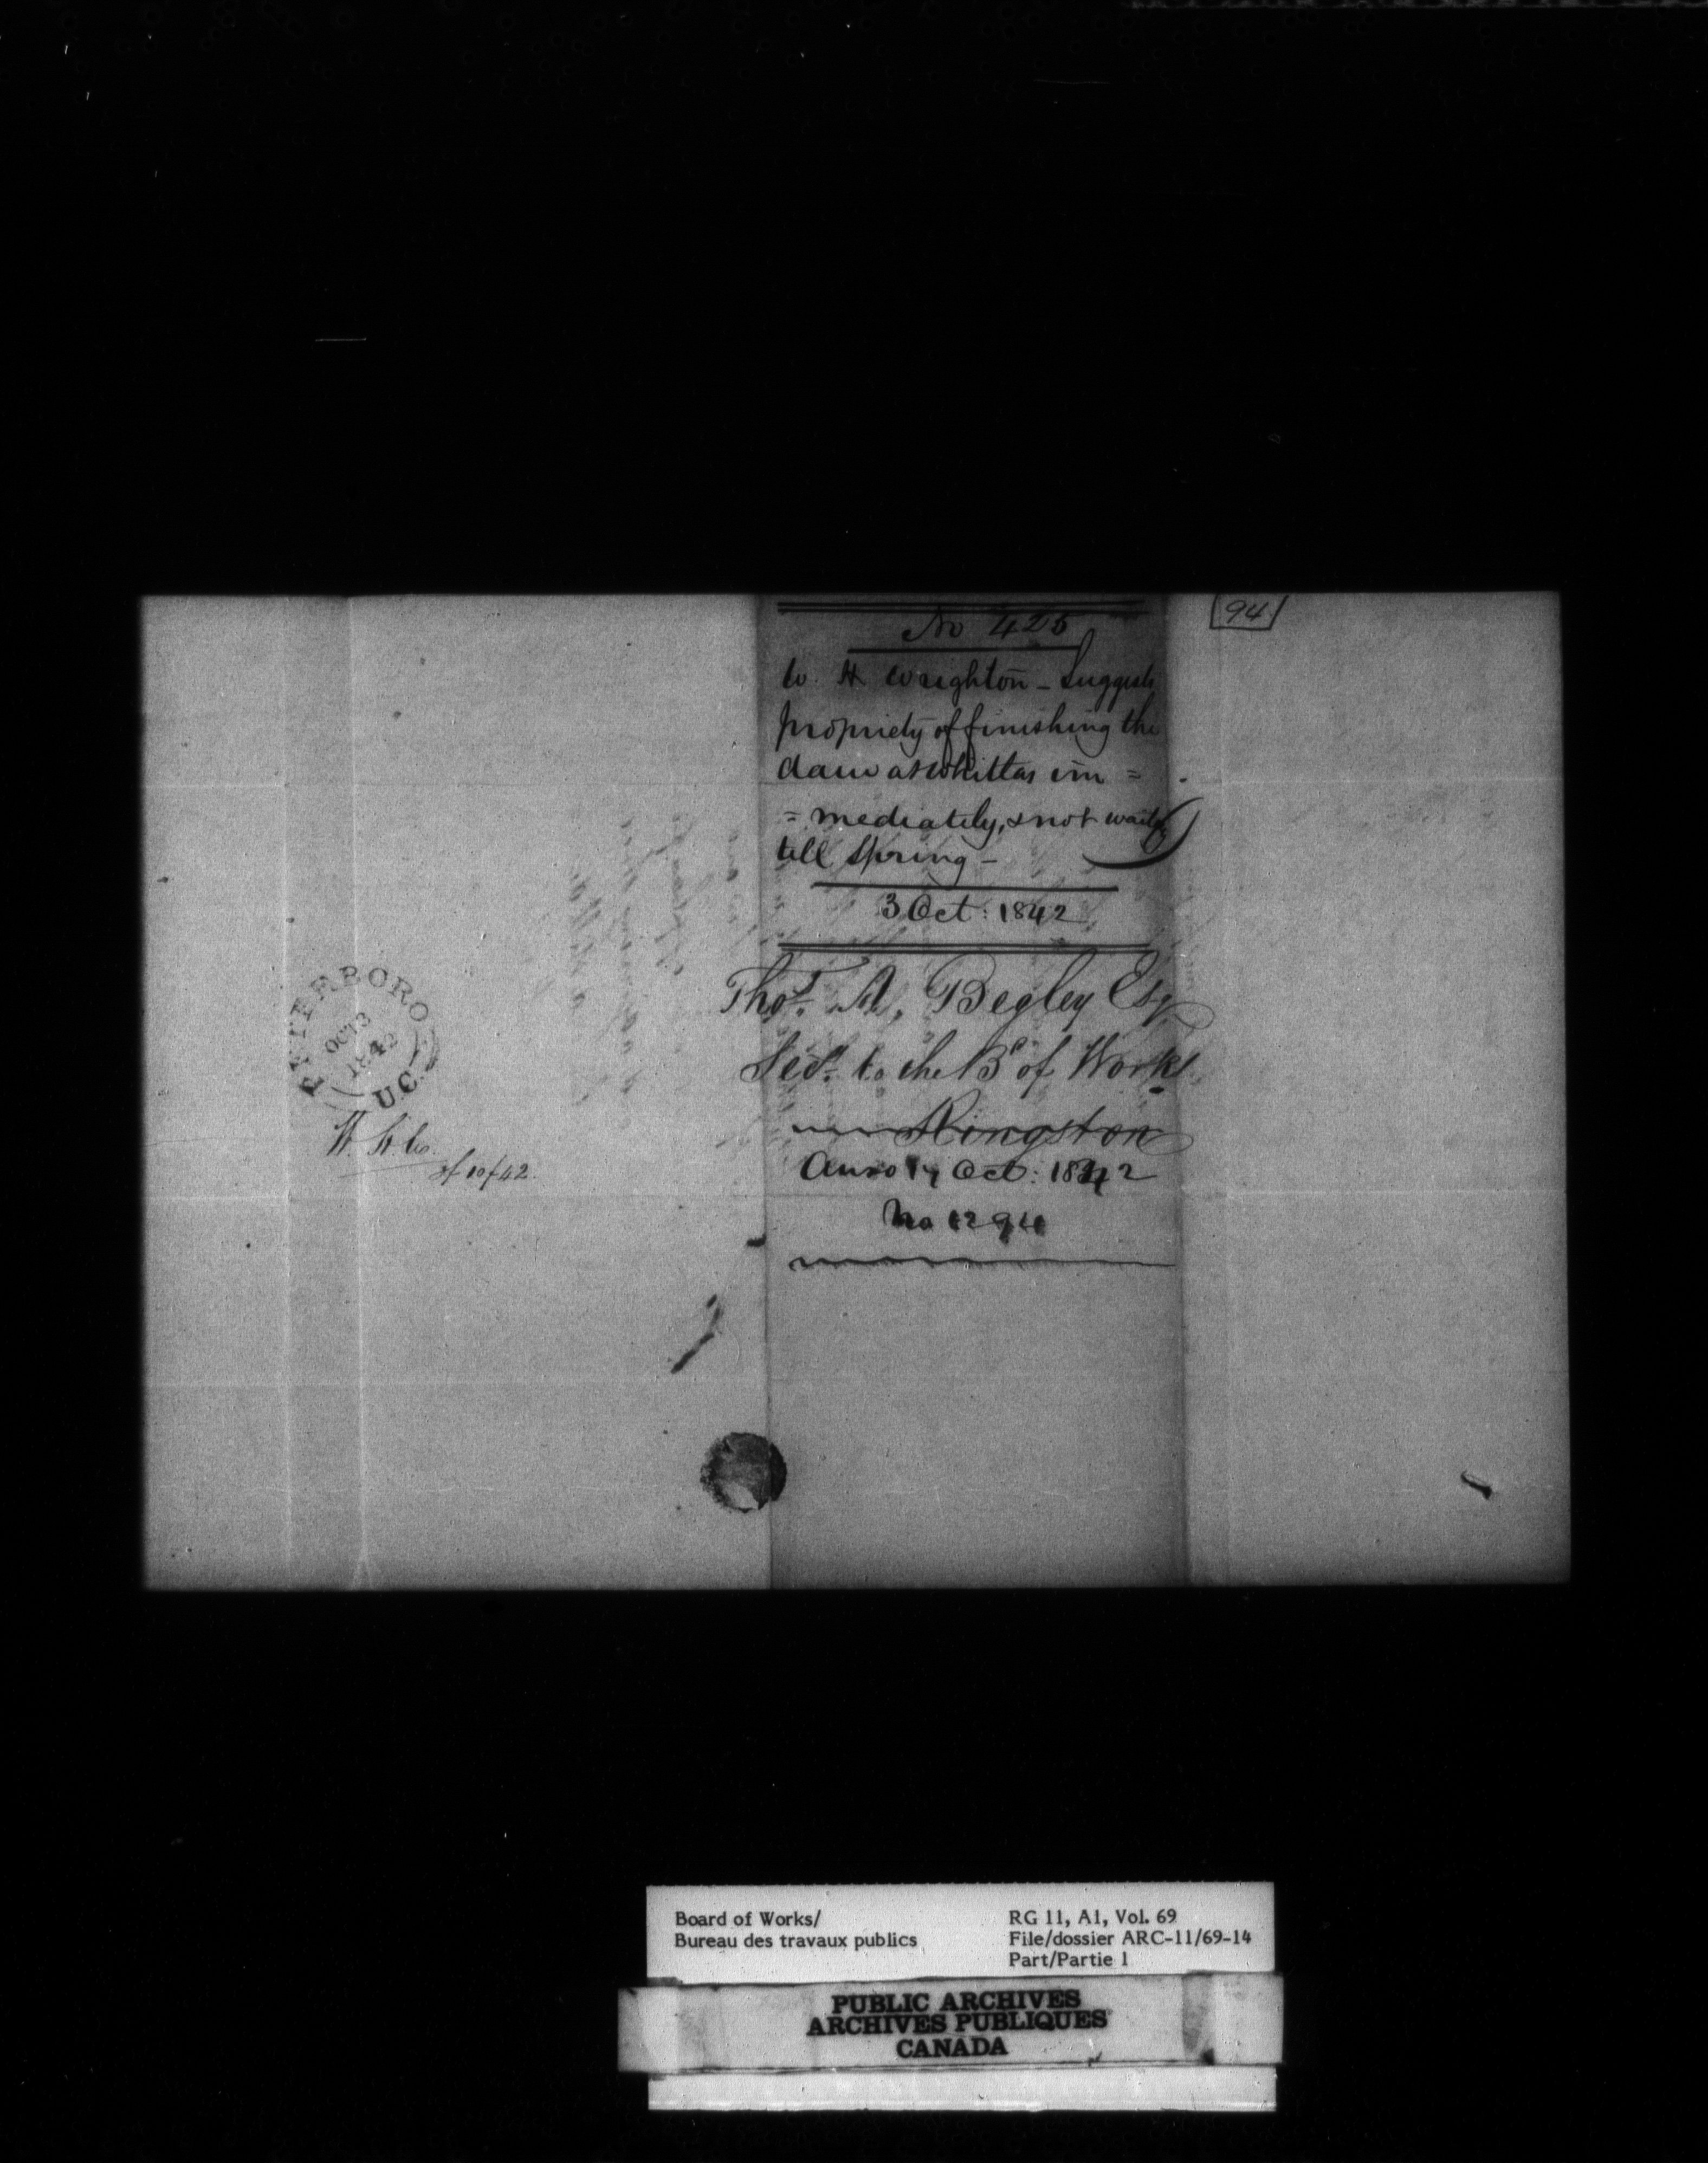 94
No 425
W. H Wrighton – Suggests
propriety of finishing the
dam at Whitlas im =
= mediately, & not waitg
till Spring –
3 Oct: 1842
Thos. A, Begley Esq
Secy. to the Bd of Works
Kingston
Ansd 14 Oct: 1842
No 1294
PETERBORO
OCT 3
1842
U.C.
W. H. W.
3/10/42.
Board of Works/
Bureau des travaux publics
RG 11, A1, Vol. 69
File/dossier ARC-11/69-14
Part/Partie 1
PUBLIC ARCHIVES
ARCHIVES PUBLIQUES
CANADA